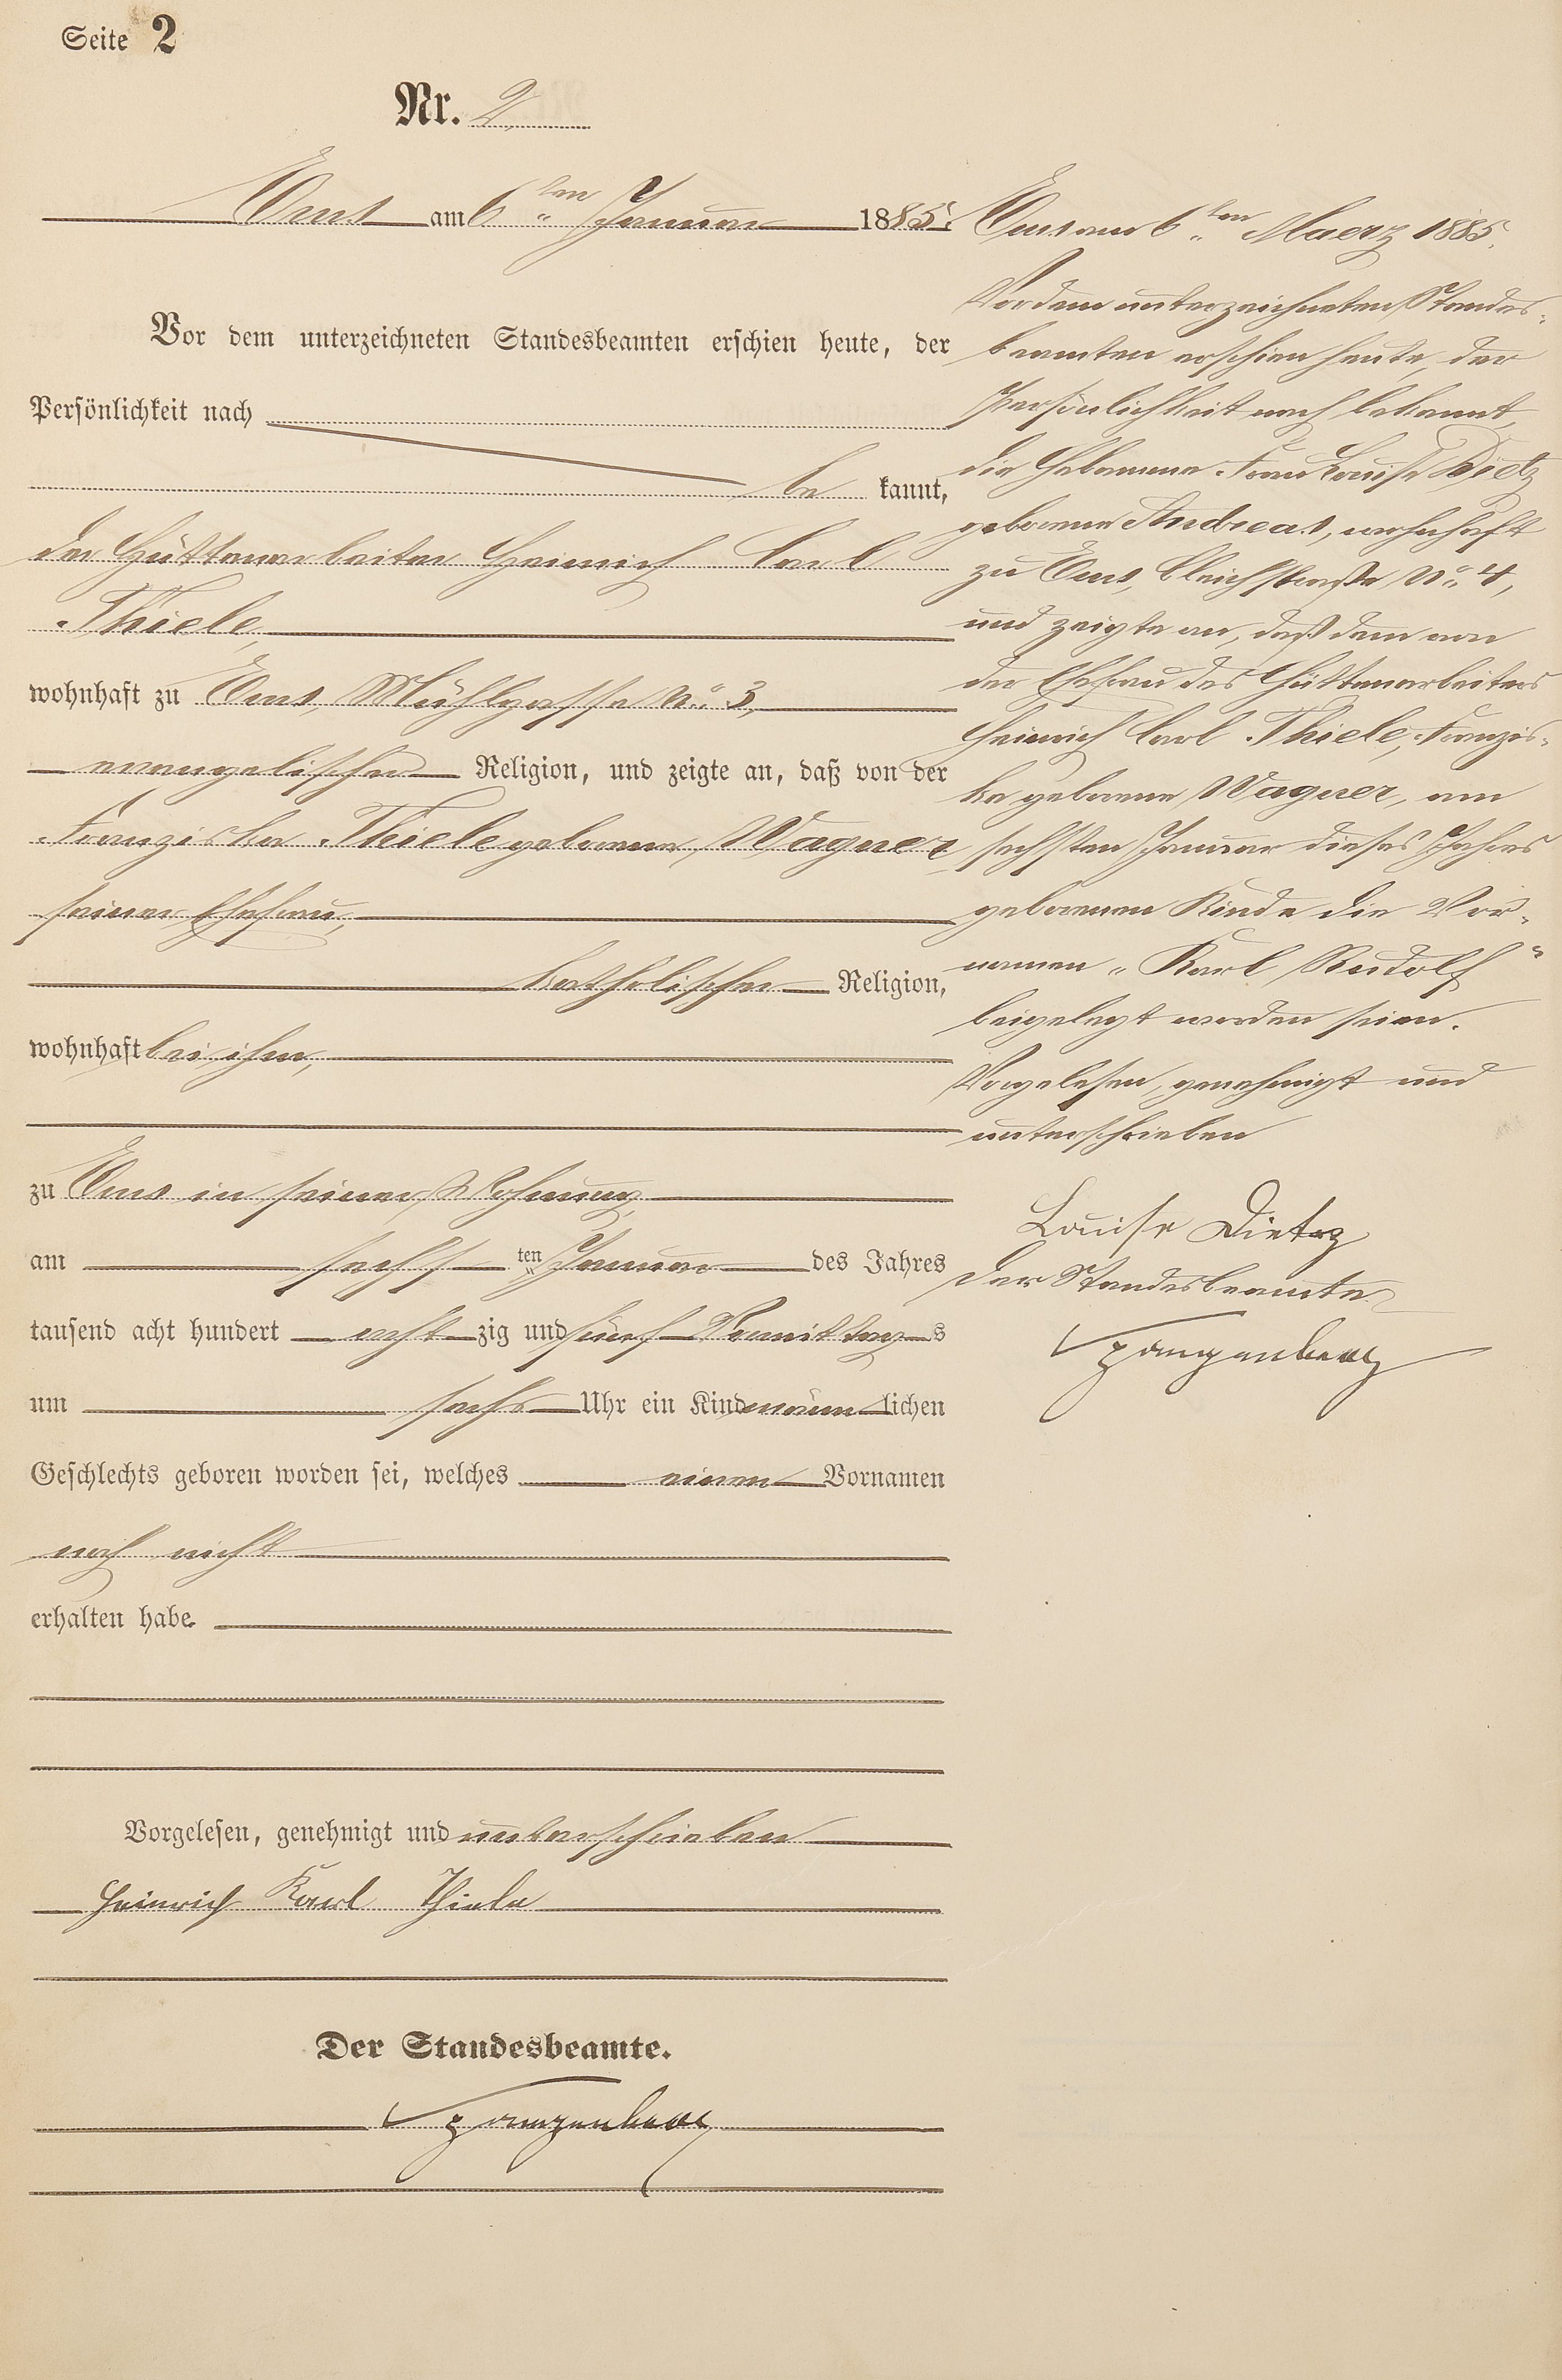 Seite 2
Nr. 2
Ems am 6ten Januar 1885.
Vor dem unterzeichneten Standesbeamten erschien heute, der
Persönlichkeit nach
be kannt,
der Hüttenarbeiter Heinrich Carl
Thiele,
wohnhaft zu Ems, Mühlgasse No. 3,
evangelischer Religion, und zeigte an, daß von der
Franziska Thiele geborenen Wagner
seiner Ehefrau,
katholischer Religion,
wohnhaft bei ihm,
zu Ems in seiner Wohnung
am sechs ten Januar des Jahres
tausend acht hundert acht zig und fünf Vormittag s
um sechs Uhr ein Kind männ lichen
Geschlechts geboren worden sei, welches einen Vornamen
noch nicht
erhalten habe.
Vorgelesen, genehmigt und unterschrieben
Heinrich Karl Thiele
Der Standesbeamte.
Spangenberg
Ems am 6ten Maerz 1885.
Vor dem unterzeichneten Standes-
beamten erschien heute, der
Persönlichkeit nach bekannt,
die Hebamme Frau Louise Dietz
geborene Andreas, wohnhaft
zu Ems, Bleichstraße No. 4,
und zeigte an, daß dem von
der Ehefrau des Hüttenarbeiters
Heinrich Carl Thiele, Franzis-
ka geborene Wagner, am
sechsten Januar dieses Jahres
geborenen Kinde die Vor-
namen „Karl Rudolf"
beigelegt worden seien.
Vorgelesen, genehmigt und
unterschrieben
Louise Dietz
Der Standesbeamte
Spangenberg